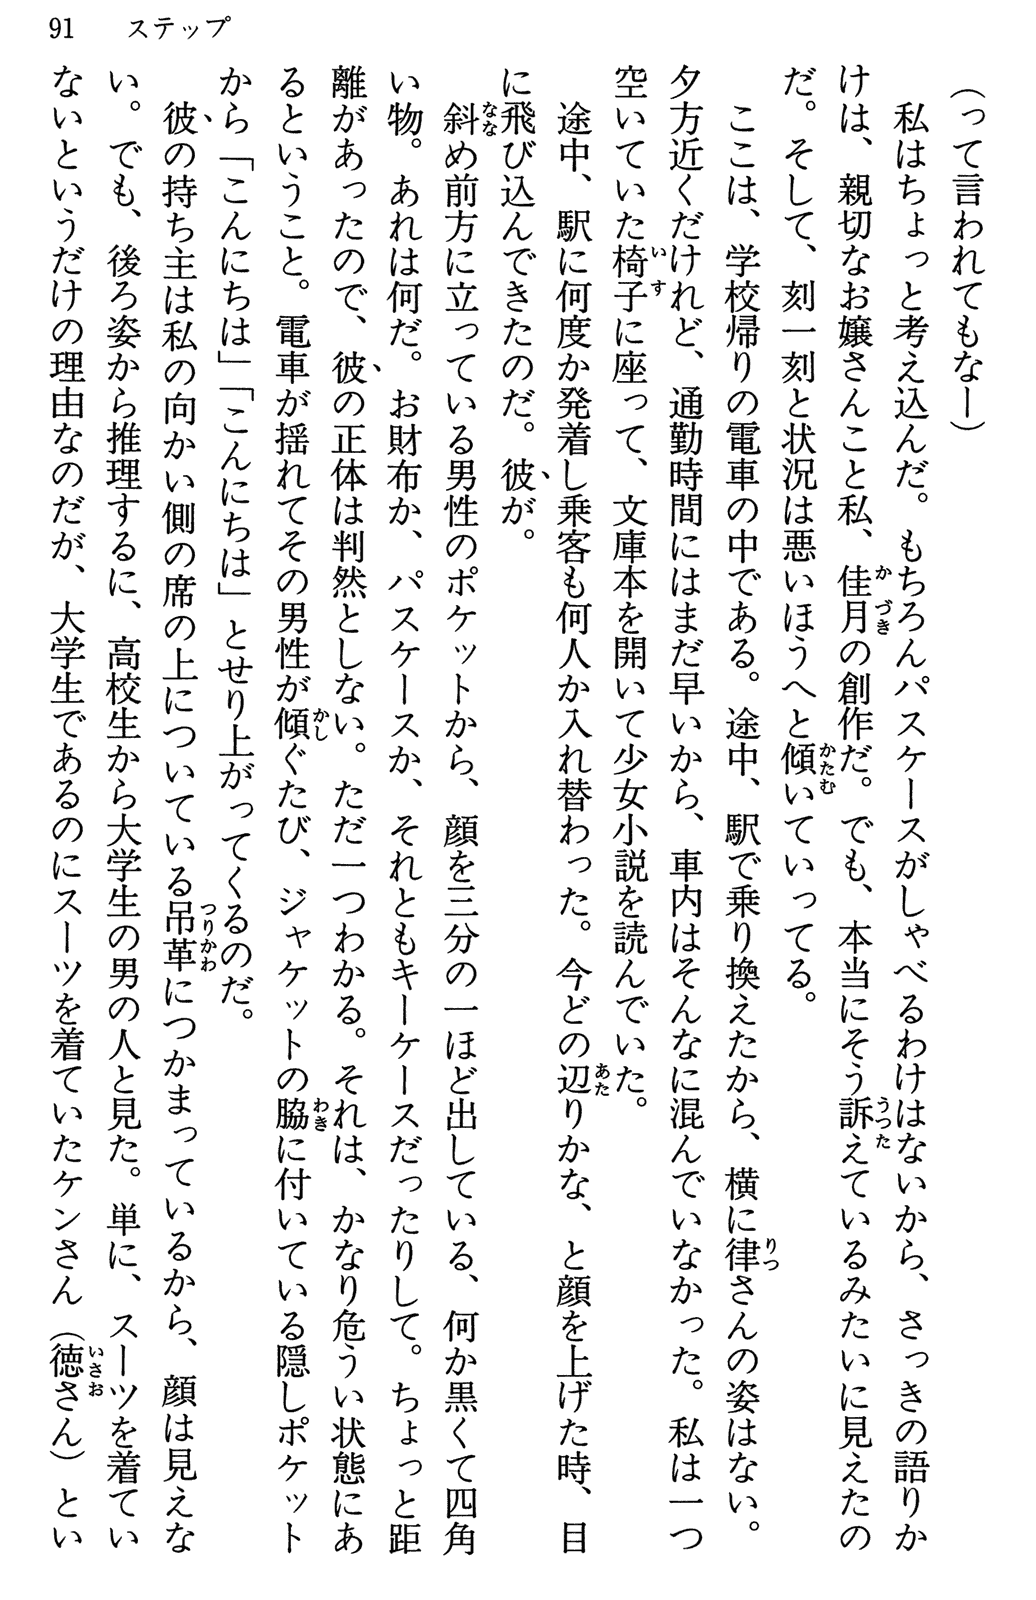 91 ステップ
（って言われてもなー）
私はちょっと考え込んだ。もちろんパスケースがしゃべるわけはないから、さっきの語りか
けは、親切なお嬢さんこと私、佳月の創作だ。でも、本当にそう訴えているみたいに見えたの
だ。そして、刻一刻と状況は悪いほうへと傾いていってる。
ここは、学校帰りの電車の中である。途中、駅で乗り換えたから、横に律さんの姿はない。
夕方近くだけれど、通勤時間にはまだ早いから、車内はそんなに混んでいなかった。私は一つ
空いていた椅子に座って、文庫本を開いて少女小説を読んでいた。
途中、駅に何度か発着し乗客も何人か入れ替わった。今どの辺りかな、と顔を上げた時、目
に飛び込んできたのだ。彼が。
斜め前方に立っている男性のポケットから、顔を三分の一ほど出している、何か黒くて四角
い物。あれは何だ。お財布か、パスケースか、それともキーケースだったりして。ちょっと距
離があったので、彼の正体は判然としない。ただ一つわかる。それは、かなり危うい状態にあ
るということ。電車が揺れてその男性が傾ぐたび、ジャケットの脇に付いている隠しポケット
から「こんにちは」「こんにちは」とせり上がってくるのだ。
彼の持ち主は私の向かい側の席の上についている吊革につかまっているから、顔は見えな
い。でも、後ろ姿から推理するに、高校生から大学生の男の人と見た。単に、スーツを着てい
ないというだけの理由なのだが、大学生であるのにスーツを着ていたケンさん（徳さん）とい